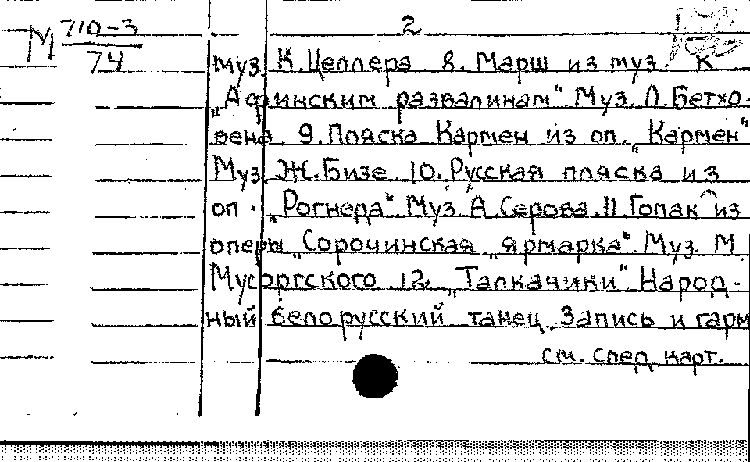 М 710-3
74
2
муз. К. Целлера 8. Марш из муз. к
„Афинским развалинам" Муз. Л. Бетхо-
вена 9. Пляска Кармен из оп. „Кармен"
Муз. Ж. Бизе 10. Русская пляска из
оп. „Рогнеда" Муз. А. Серова. 11. Гопак из
оперы „Сорочинская ярмарка". Муз. М.
Мусоргского 12. „Талкачики" Народ-
ный белорусский танец. Запись и гарм
см. след. карт.